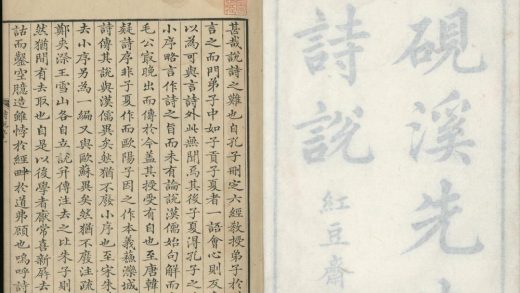 硯溪先
詩說
紅豆齋
甚哉說詩之難也自孔子刪定六經教授弟子於
言之而門弟子中如子貢子夏者一語會心則反
以為可與言詩外此無聞焉其後子夏得孔子之
小序略言作詩之旨而未有論說漢儒始句解而
毛公最晚出而傳於今蓋其授受有自也至唐韓
疑詩序非子夏作而歐陽子因之作本義城
詩傳其說與漢儒異矣然猶不廢小序也至宋朱
去小序另為一編又與歐蘇異矣然猶不廢注疏
鄭夾漈王雪山各自立說斥傳注去之比朱子則
然猶聞有去取也自是以後學者厭常喜新屏去
詁而鑿空臆造離悖於經畔於道弗顧也嗚呼詩